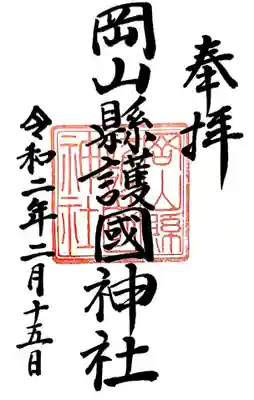 奉拝
岡山縣護國神社
令和二年二月十五日
岡山縣
護國
神社